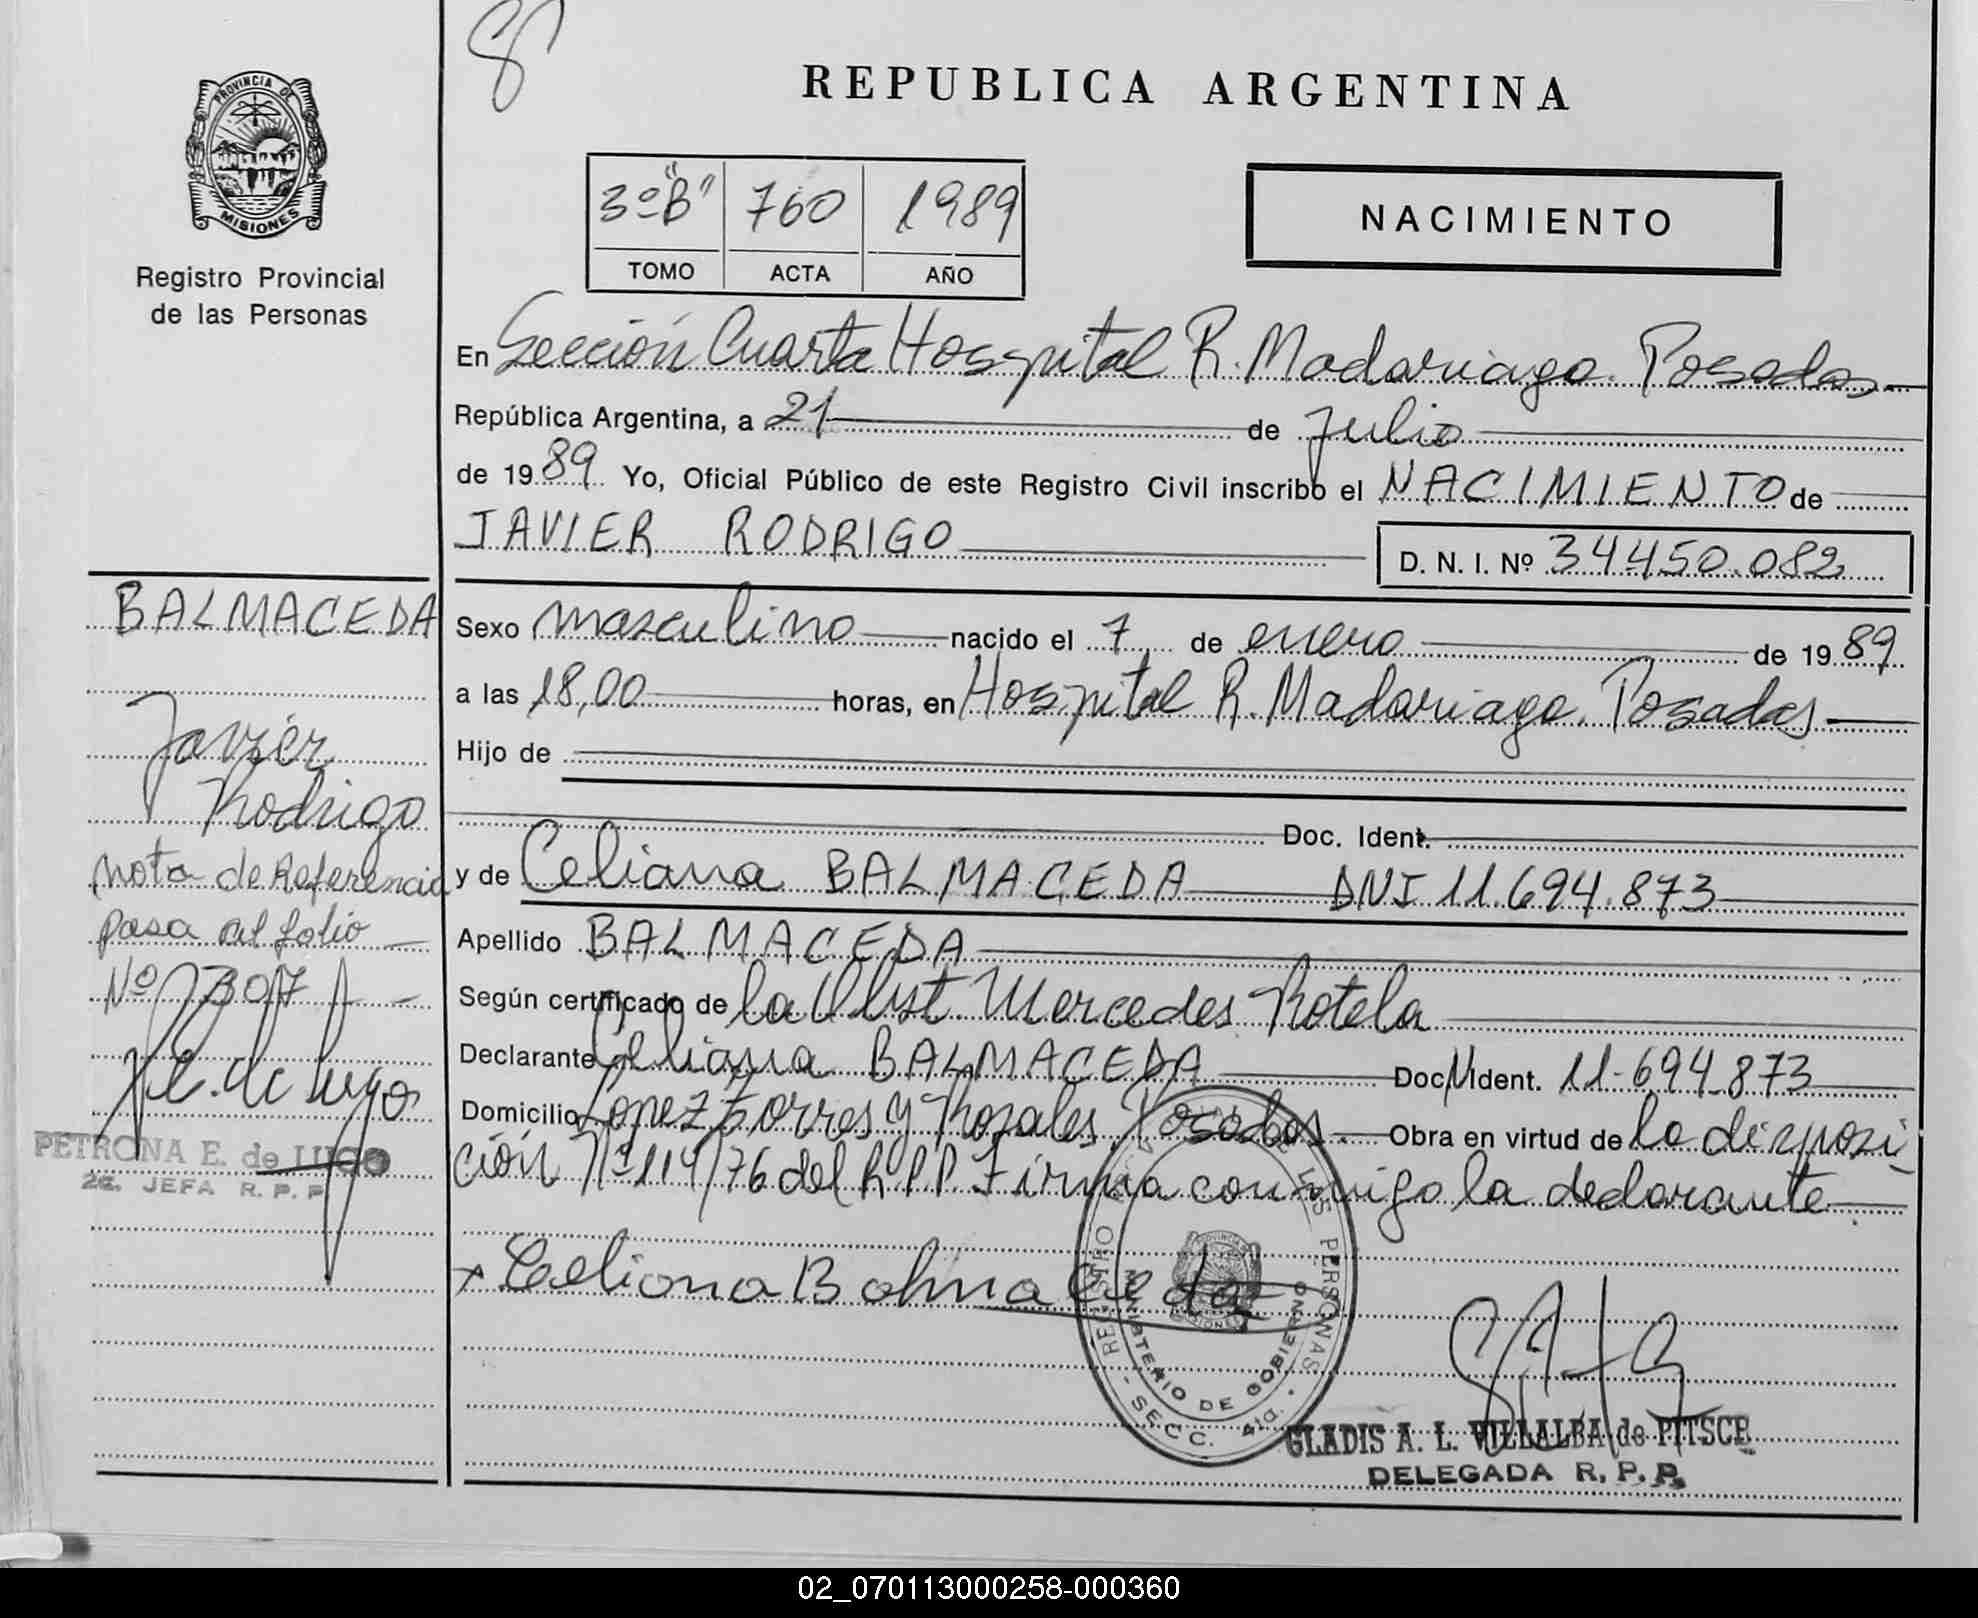 8
PROVINCIA DE
MISIONES
Registro Provincial
de las Personas
REPUBLICA ARGENTINA
3º "B" 760 1989
TOMO ACTA AÑO
NACIMIENTO
En Sección Cuarta Hospital R. Madariaga. Posadas
República Argentina, a 21 de Julio
de 1989 Yo, Oficial Público de este Registro Civil inscribo el NACIMIENTO de
JAVIER RODRIGO D. N. I. Nº 34450.082
Sexo masculino nacido el 7 de enero de 1989
a las 18,00 horas, en Hospital R. Madariaga. Posadas
Hijo de
Doc. Ident.
y de Celiana BALMACEDA DNI 11.694.873
Apellido BALMACEDA
Según certificado de la Obst. Mercedes Rotela
Declarante Celiana BALMACEDA Doc. Ident. 11-694-873
Domicilio Lopez Torres y Rosales Posadas. Obra en virtud de la disposi
ción Nº 114/76 del R.P.P. Firma conmigo la declarante
x Celiana Balmaceda
REGISTRO PERSONAS
MINISTERIO DE GOBIERNO
SECC. 4ta.
GLADIS A. L. VILLALBA de PITSCE
DELEGADA R. P. P.
BALMACEDA
Javier
Rodrigo
Nota de Referencia
pasa al folio
Nº 307
P.E. de Lugo
PETRONA E. de LUGO
2a. JEFA R. P. P.
02_070113000258-000360